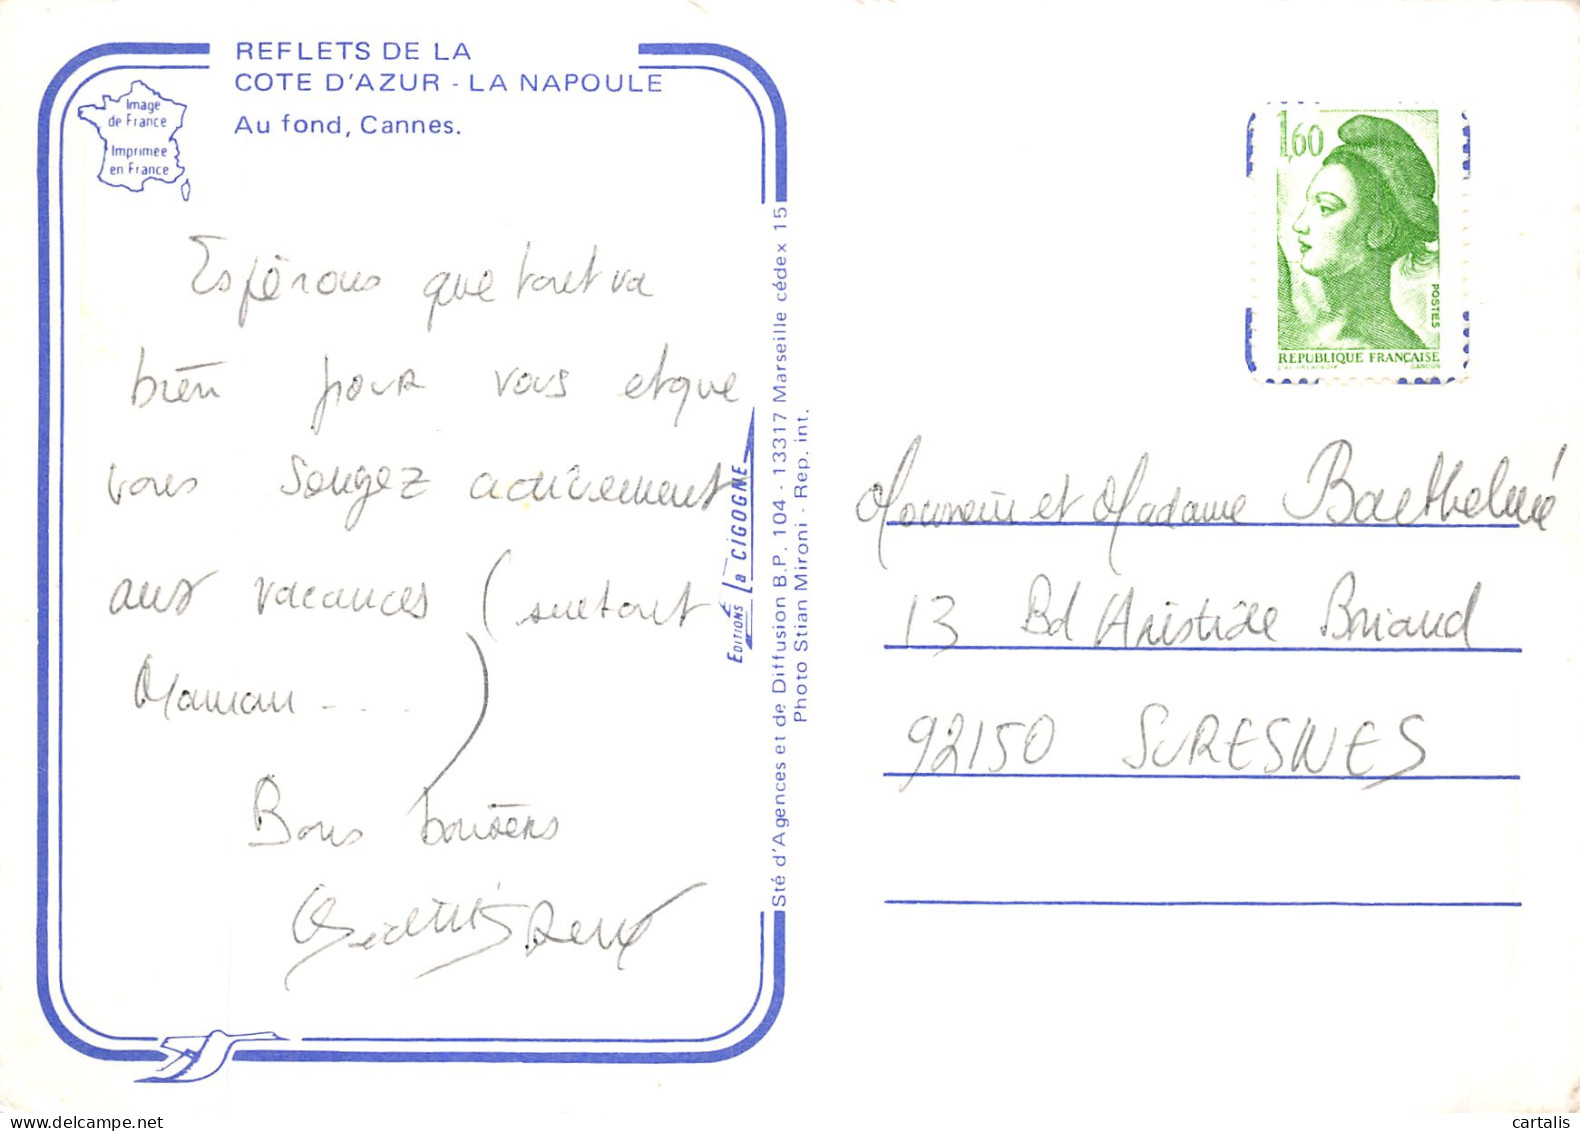 REFLETS DE LA
COTE D'AZUR - LA NAPOULE
Au fond, Cannes.
Image
de France
Imprimée
en France
Espérons que tout va
bien pour vous et que
vous songez activement
aux vacances (surtout
Maman ....)
Bons baisers
EDITIONS La CIGOGNE
Sté d'Agences et de Diffusion B.P. 104 - 13317 Marseille cédex 15
Photo Stian Mironi - Rep. int.
1,60
POSTES
REPUBLIQUE FRANÇAISE
GANDON
Monsieur et Madame Barthelmé
13 Bd Aristide Briand
92150 SURESNES
cartalis